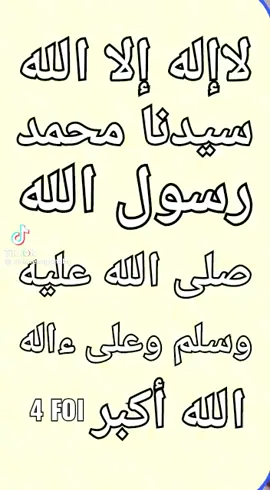 لاإله إلا الله
سيدنا محمد
رسول الله
صلى الله عليه
وسلم وعلى ءاله
الله أكبر 4 FOI